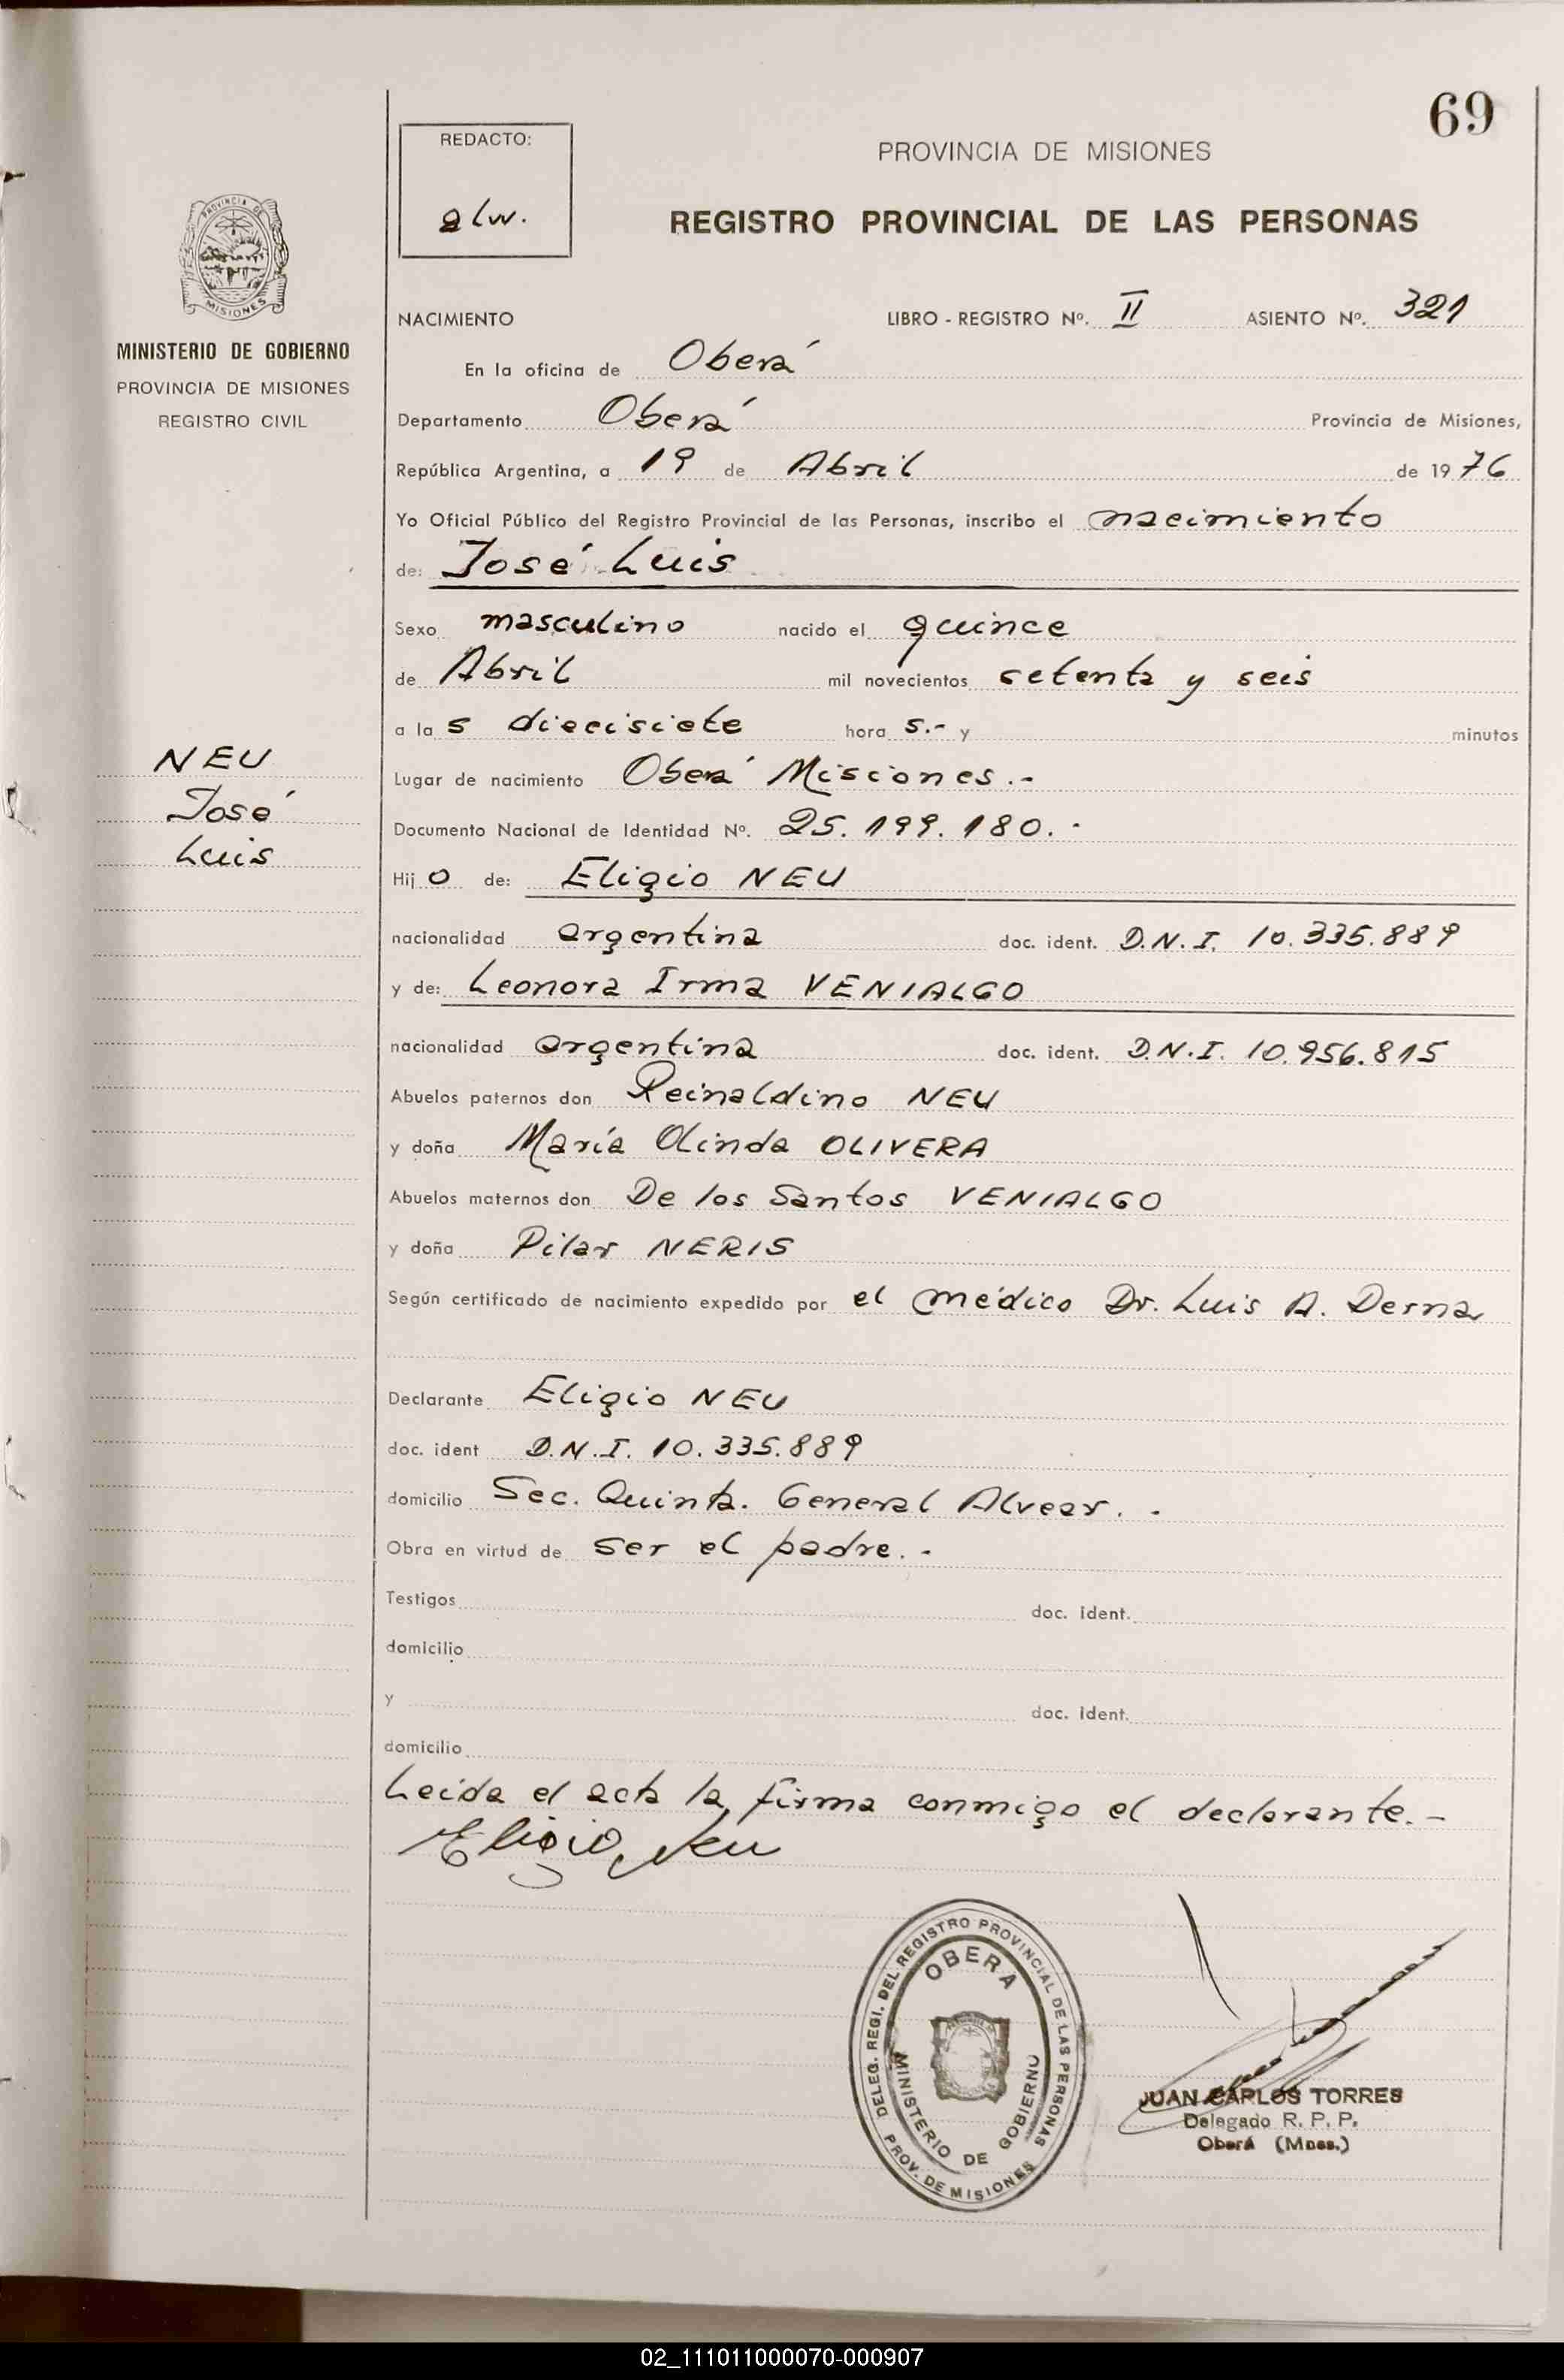 69
REDACTO:
alw.
PROVINCIA DE MISIONES
REGISTRO PROVINCIAL DE LAS PERSONAS
PROVINCIA DE
MISIONES
MINISTERIO DE GOBIERNO
PROVINCIA DE MISIONES
REGISTRO CIVIL
NACIMIENTO LIBRO - REGISTRO Nº. II ASIENTO Nº. 321
En la oficina de Oberá
Departamento Oberá Provincia de Misiones,
República Argentina, a 19 de Abril de 1976
Yo Oficial Público del Registro Provincial de las Personas, inscribo el nacimiento
de: José Luis
Sexo masculino nacido el quince
de Abril mil novecientos setenta y seis
a las diecisiete hora s.- y minutos
NEU
José
Luis
Lugar de nacimiento Oberá Misiones.-
Documento Nacional de Identidad Nº. 25.199.180.-
Hijo de: Eligio NEU
nacionalidad argentina doc. ident. D.N.I. 10.335.889
y de: Leonora Irma VENIALGO
nacionalidad argentina doc. ident. D.N.I. 10.956.815
Abuelos paternos don Reinaldino NEU
y doña María Olinda OLIVERA
Abuelos maternos don De los Santos VENIALGO
y doña Pilar NERIS
Según certificado de nacimiento expedido por el médico Dr. Luis A. Derna
Declarante Eligio NEU
doc. ident D.N.I. 10.335.889
domicilio Sec. Quinta. General Alvear.-
Obra en virtud de ser el padre.-
Testigos doc. ident.
domicilio
y doc. ident.
domicilio
Leída el acta la firma conmigo el declarante.-
Eligio Neu
DELEG. REGI. DEL REGISTRO PROVINCIAL DE LAS PERSONAS
OBERA
MINISTERIO DE GOBIERNO
PROV. DE MISIONES
JUAN CARLOS TORRES
Delegado R. P. P.
Oberá (Mnes.)
02_111011000070-000907